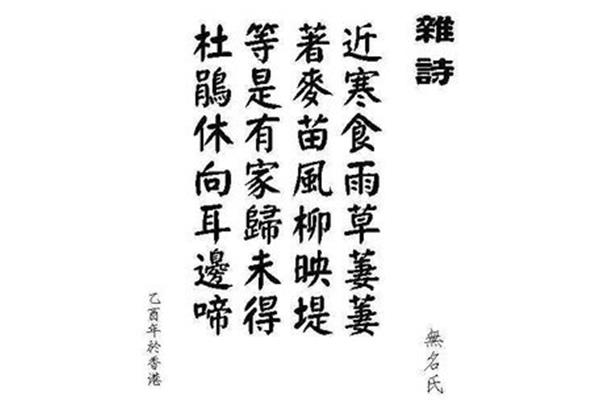 雜詩
無名氏
近寒食雨草萋萋
著麥苗風柳映堤
等是有家歸未得
杜鵑休向耳邊啼
乙酉年於香港